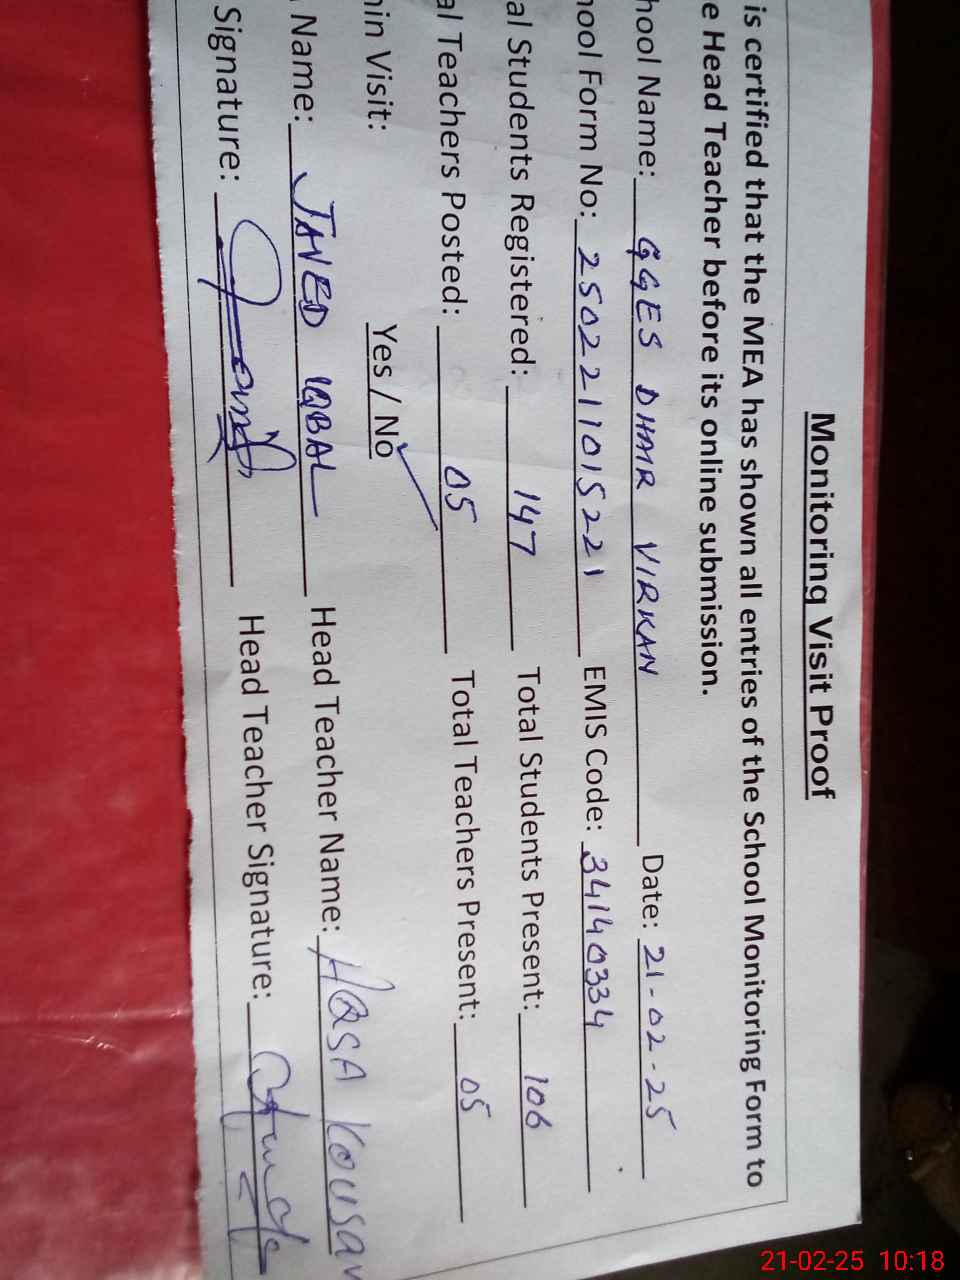 Monitoring Visit Proof
is certified that the MEA has shown all entries of the School Monitoring Form to
e Head Teacher before its online submission.
hool Name: GGES DHAIR VIRKAN Date: 21-02-25
hool Form No: 2502211015221 EMIS Code: 34140334
al Students Registered: 147 Total Students Present: 106
al Teachers Posted: 05 Total Teachers Present: 05
in Visit: Yes / No
Name: JAVED IQBAL Head Teacher Name: HQSA KOUSAR
Signature: Head Teacher Signature:
21-02-25 10:18